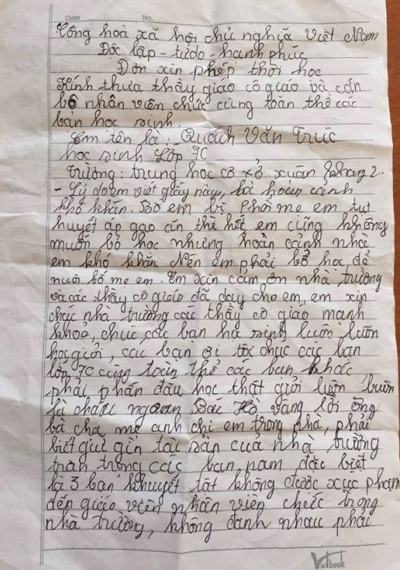 Date No.
Công hoà xã hội chủ nghĩa Việt Nam
Độc lập - tựdo - hanh phúc
Đơn xin phép thôi học
Kính thưa thầy giáo cô giáo và cán
bộ nhân viên chức cùng toàn thể các
bạn học sinh
Em tên là : Quách Văn Trúc
học sinh Lớp 7C
Trường : trung học cơ xở xuân phong 2.
- Lí do em viết giấy này, là hoàn cảnh
khó khăn. Bố em bị phổi mẹ em tụt
huyết áp gạo cín thì hết em cũng không
muốn bỏ học nhưng hoàn cảnh nhà
em khó khăn. Nên em phải bỏ học để
nuôi bố mẹ em. Em xin cảm ơn nhà trường
và các thầy cô giáo đã dạy cho em, em xin
chúc nhà trường các thầy cô giáo mạnh
khoẻ, chúc các bạn học sinh luôn luôn
học giỏi, các bạn ơi tôi chúc các bạn
lớp 7C cùng toàn thể các bạn khác
phải phấn đấu học thật giỏi luôn luôn
là cháu ngoan Bác Hồ vâng lời ông
bà cha mẹ anh chị em trong nhà, phải
biết giữ gìn tài sản của nhà trường
trân trọng các bạn, nam đặc biệt
là 3 bạn khuyết tật không được xúc phạm
đến giáo viên nhân viên chức trong
nhà trường, không đánh nhau phải
Vietbook